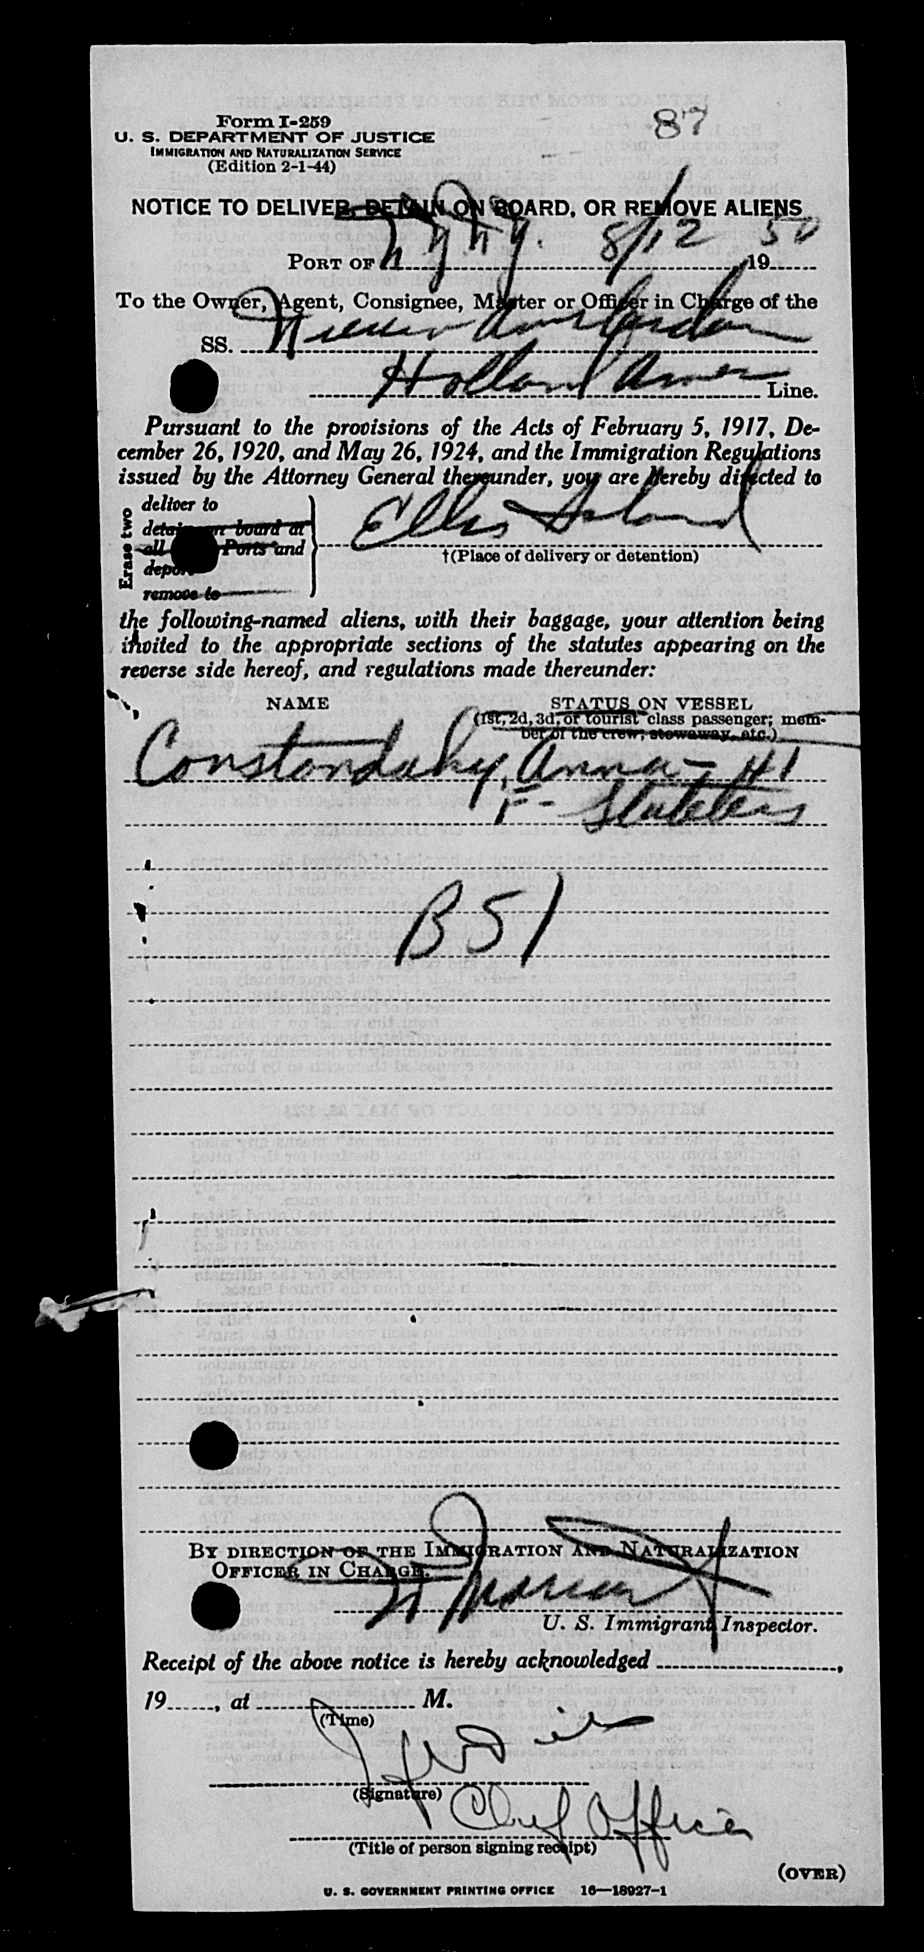 87
Form I-259
U. S. DEPARTMENT OF JUSTICE
IMMIGRATION AND NATURALIZATION SERVICE
(Edition 2-1-44)
NOTICE TO DELIVER, DETAIN ON BOARD, OR REMOVE ALIENS
PORT OF N Y N Y. 8/12 1950
To the Owner, Agent, Consignee, Master or Officer in Charge of the
SS. Nieuw Amsterdam
Holland Amer Line.
Pursuant to the provisions of the Acts of February 5, 1917, De-
cember 26, 1920, and May 26, 1924, and the Immigration Regulations
issued by the Attorney General thereunder, you are hereby directed to
Erase two
deliver to
detain on board at
all Ports and
deport
remove to
Ellis Island
†(Place of delivery or detention)
the following-named aliens, with their baggage, your attention being
invited to the appropriate sections of the statutes appearing on the
reverse side hereof, and regulations made thereunder:
NAME STATUS ON VESSEL
(1st, 2d, 3d, or tourist class passenger; mem-
ber of the crew, stowaway, etc.)
Constandahy, Anna - 41
F-
B51
BY DIRECTION OF THE IMMIGRATION AND NATURALIZATION
OFFICER IN CHARGE.
U. S. Immigrant Inspector.
Receipt of the above notice is hereby acknowledged
19, at M.
(Time)
(Signature)
Chief Officer
(Title of person signing receipt)
(OVER)
U. S. GOVERNMENT PRINTING OFFICE 16—18927-1